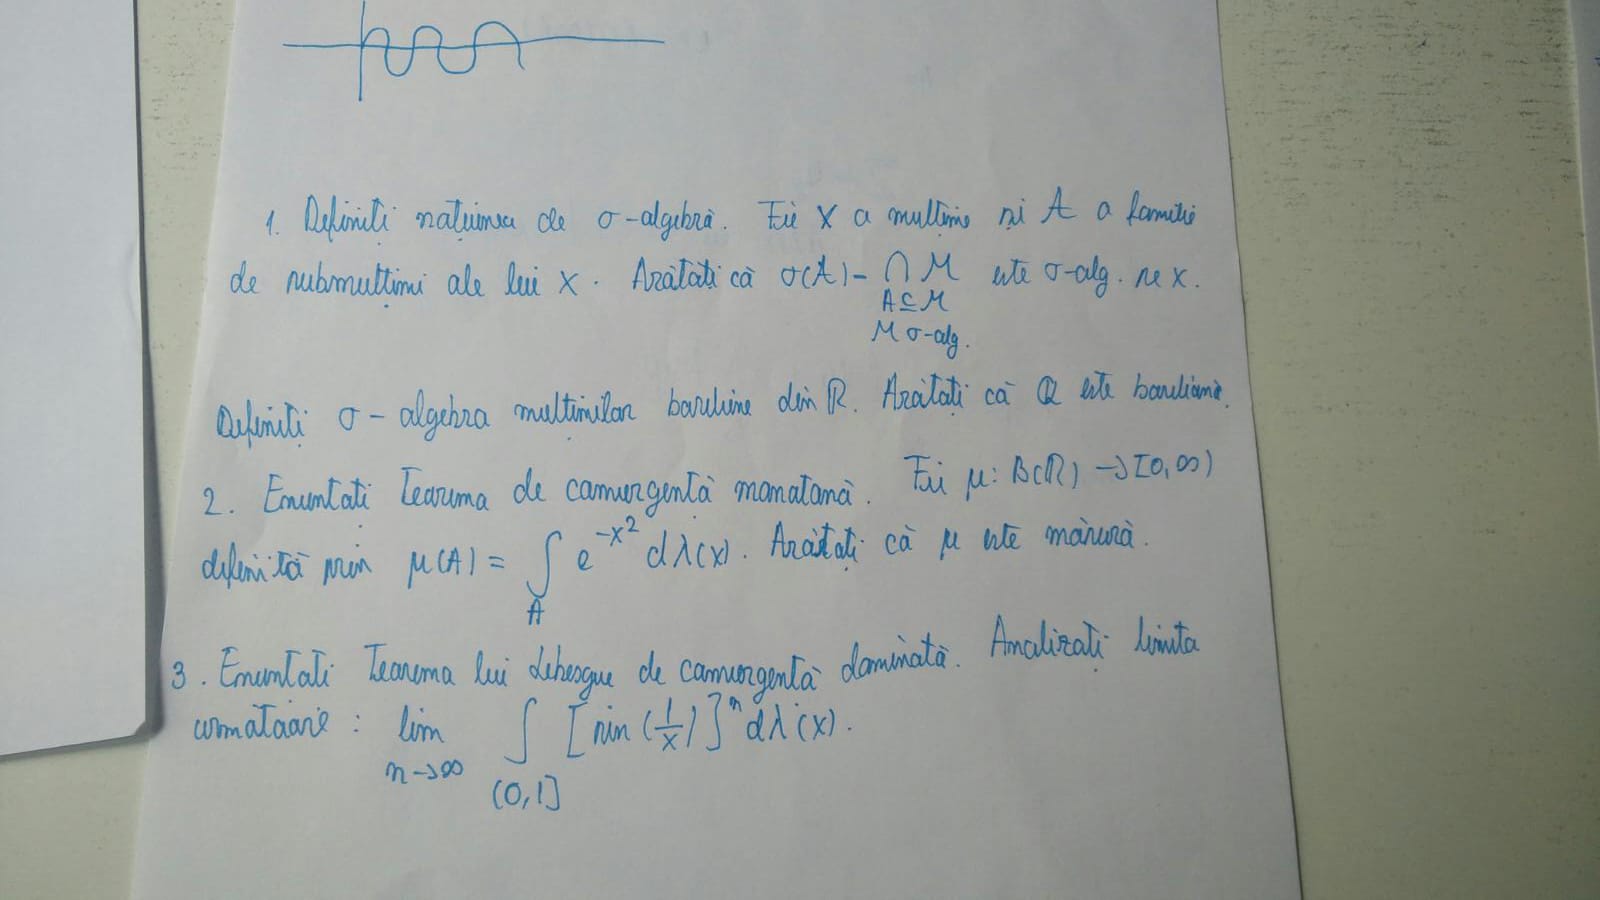 1. Definiți noțiunea de σ-algebră. Fie X o mulțime și A o familie
de submulțimi ale lui X. Arătați că σ(A) = ∩ M este σ-alg. pe X.
A ⊆ M
M σ-alg.
Definiți σ-algebra mulțimilor boreliene din ℝ. Arătați că ℚ este boreliană.
2. Enunțați Teorema de convergență monotonă. Fie μ: B(ℝ) → [0,∞)
definită prin μ(A) = ∫ e^{-x^2} dλ(x). Arătați că μ este măsură.
A
3. Enunțati Teorema lui Lebesgue de convergență dominată. Analizați limita
următoare: lim ∫ [sin(1/x)]^n dλ(x).
n→∞ (0,1]